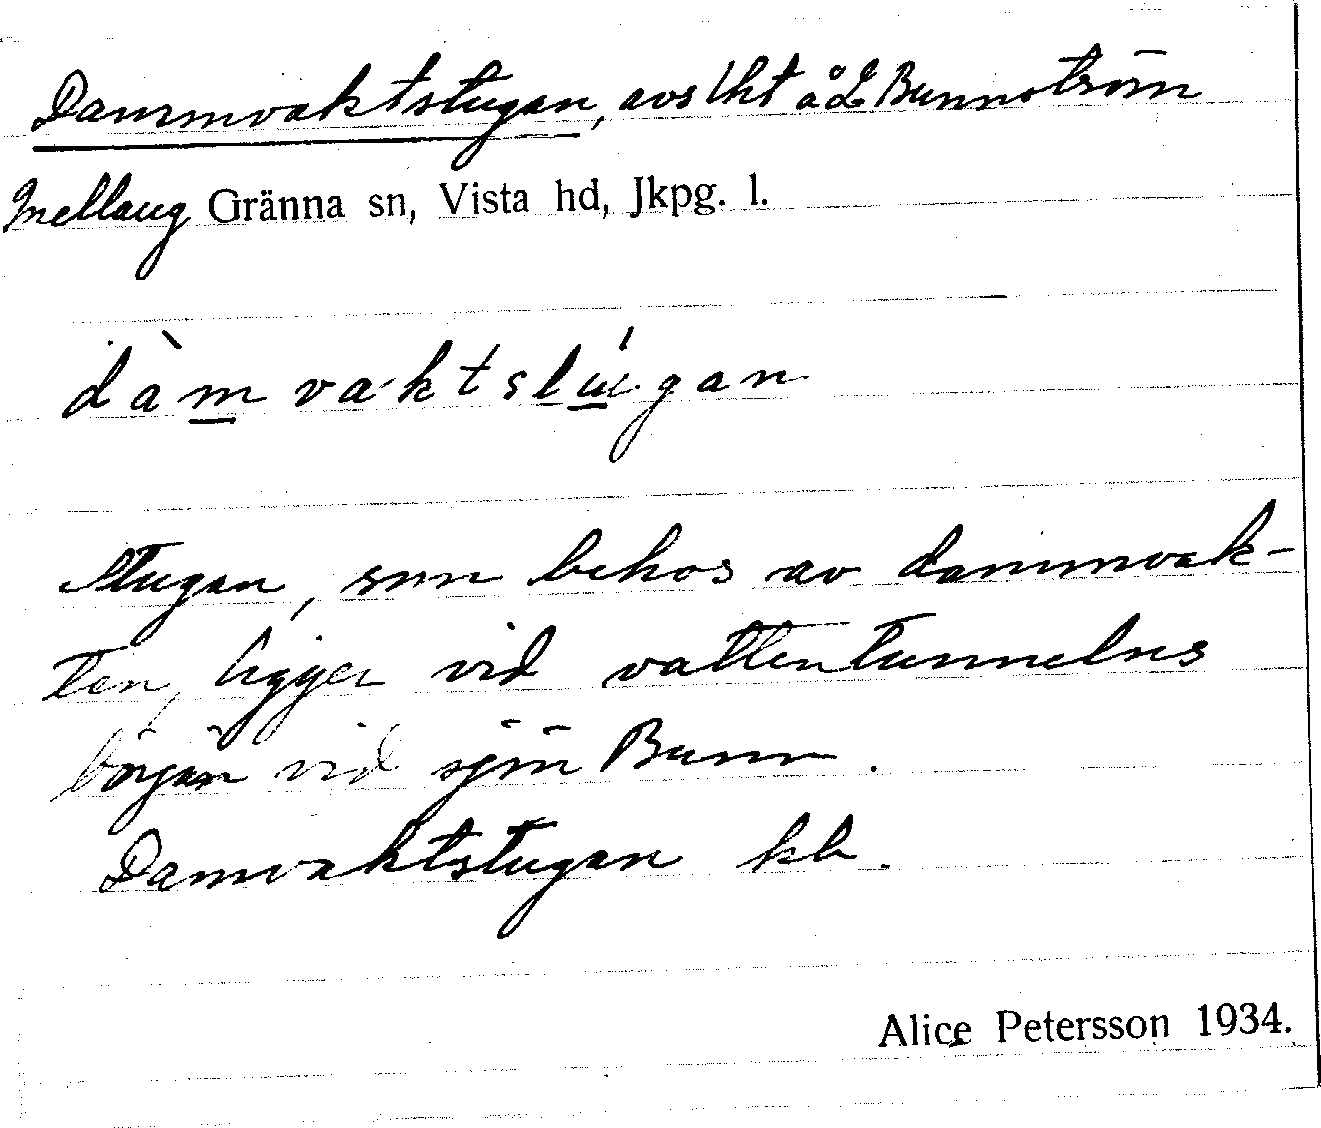 Dammvaktstugan, avs lht å L Bunnström
Mellang Gränna sn, Vista hd, Jkpg. l.
dàmvaktstúgan
Stugan, som bebos av dammvak-
ten, ligger vid vattentunnelns
början vid sjön Bunn.
Damvaktstugan kb.
Alice Petersson 1934.